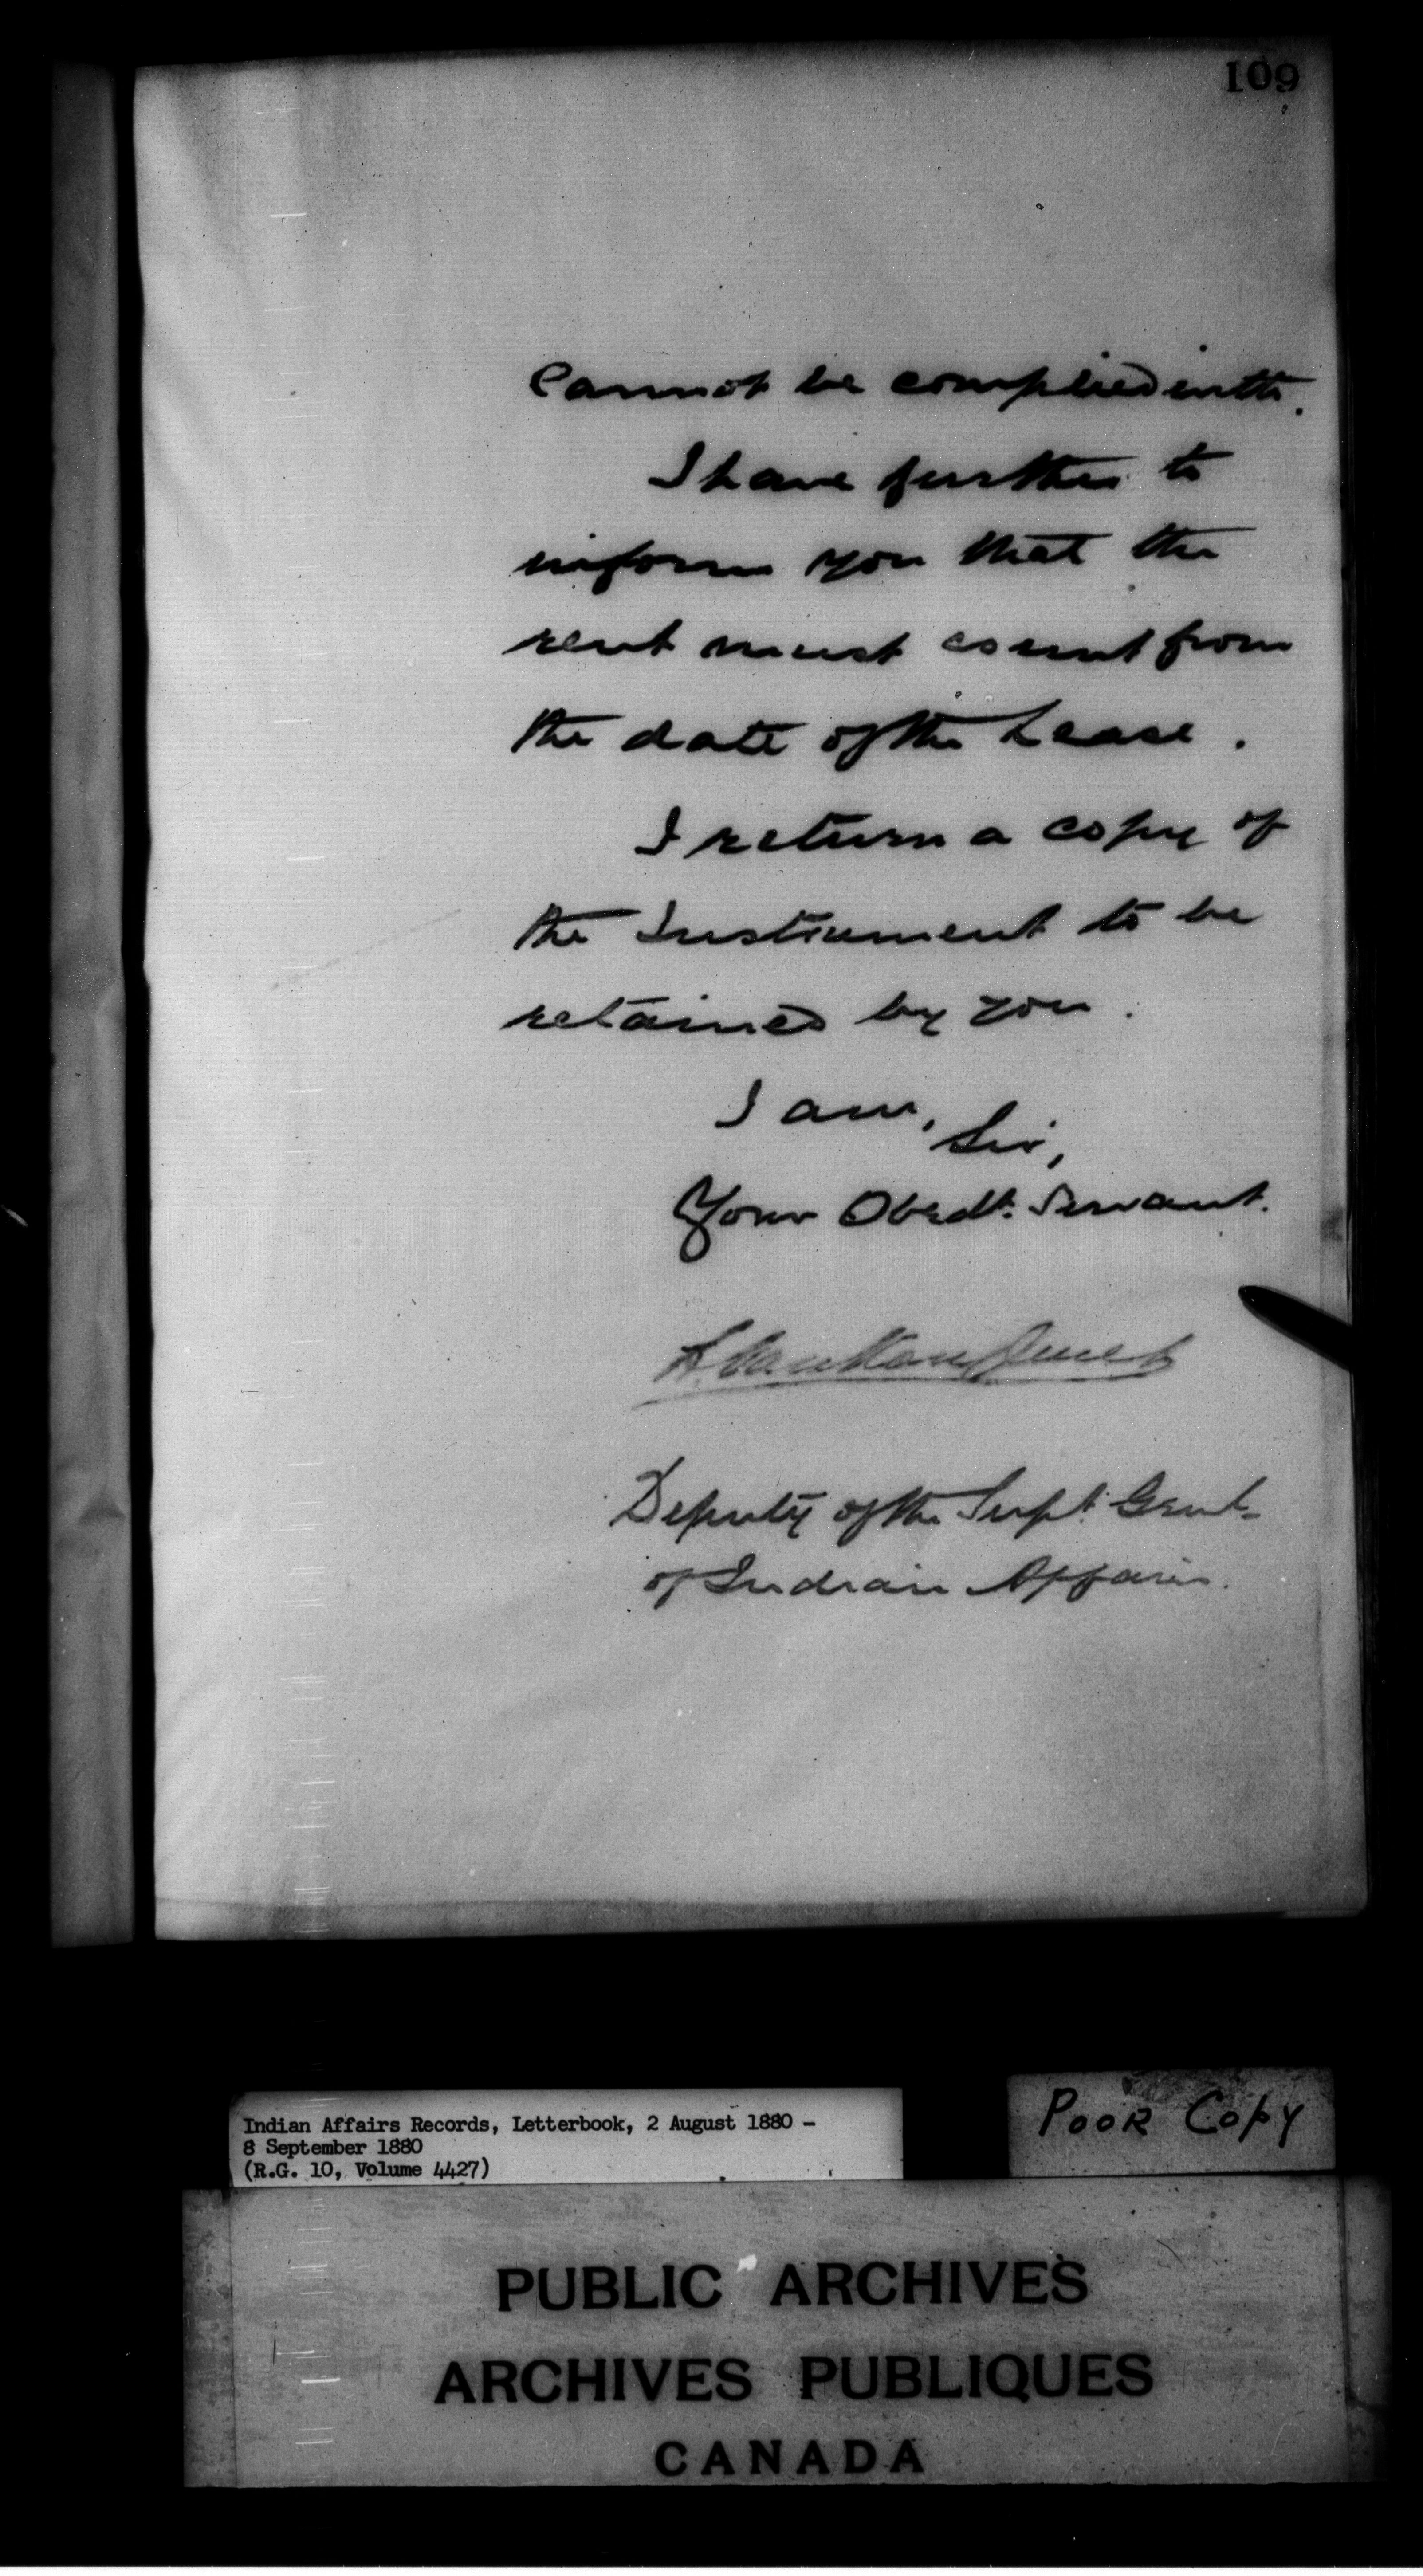 109
Cannot be complied with.
I have further to
inform you that the
rent must count from
the date of the Lease.
I return a copy of
the Instrument to be
retained by you.
I am, Sir,
Your Obedt. Servant.
L. VanKoughnet
Deputy of the Supt. Genl.
of Indian Affairs.
Indian Affairs Records, Letterbook, 2 August 1880 -
8 September 1880
(R.G. 10, Volume 4427)
POOR COPY
PUBLIC ARCHIVES
ARCHIVES PUBLIQUES
CANADA